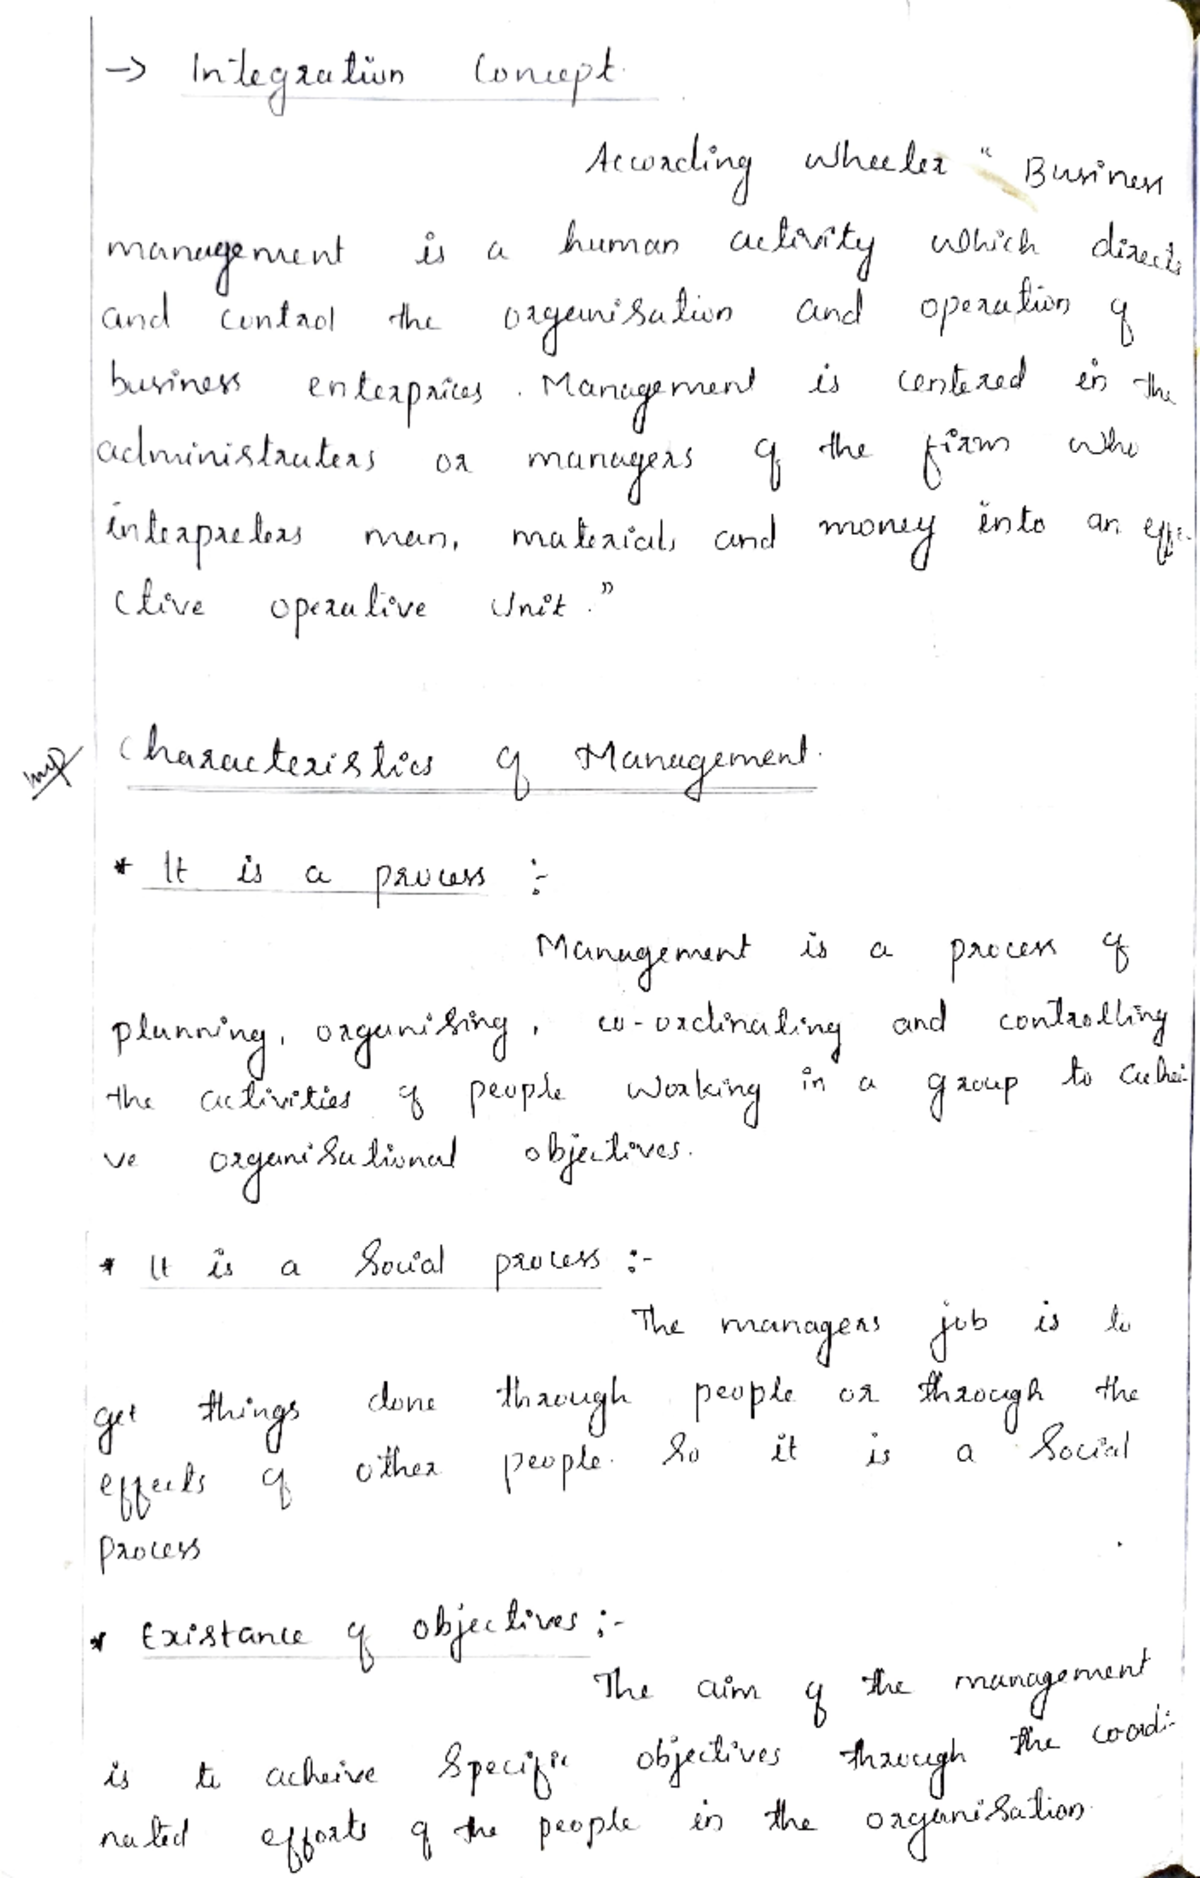 → Integration Concept.
According Wheeler " Business
management is a human activity which directs
and control the organisation and operation of
business enterprices. Management is centered in the
administraters or managers of the firm who
interpreters man, materials and money into an effe-
ctive operative Unit."
Imp Characteristics of Management.
* It is a process :-
Management is a process of
planning, organising, co-ordinating and controlling
the activities of people working in a group to achei-
ve organisational objectives.
* It is a Social process :-
The managers job is to
get things done through people or through the
effects of other people. So it is a Social
process
* Existance of objectives :-
The aim of the management
is to acheive Specific objectives through the coordi-
nated efforts of the people in the organisation.